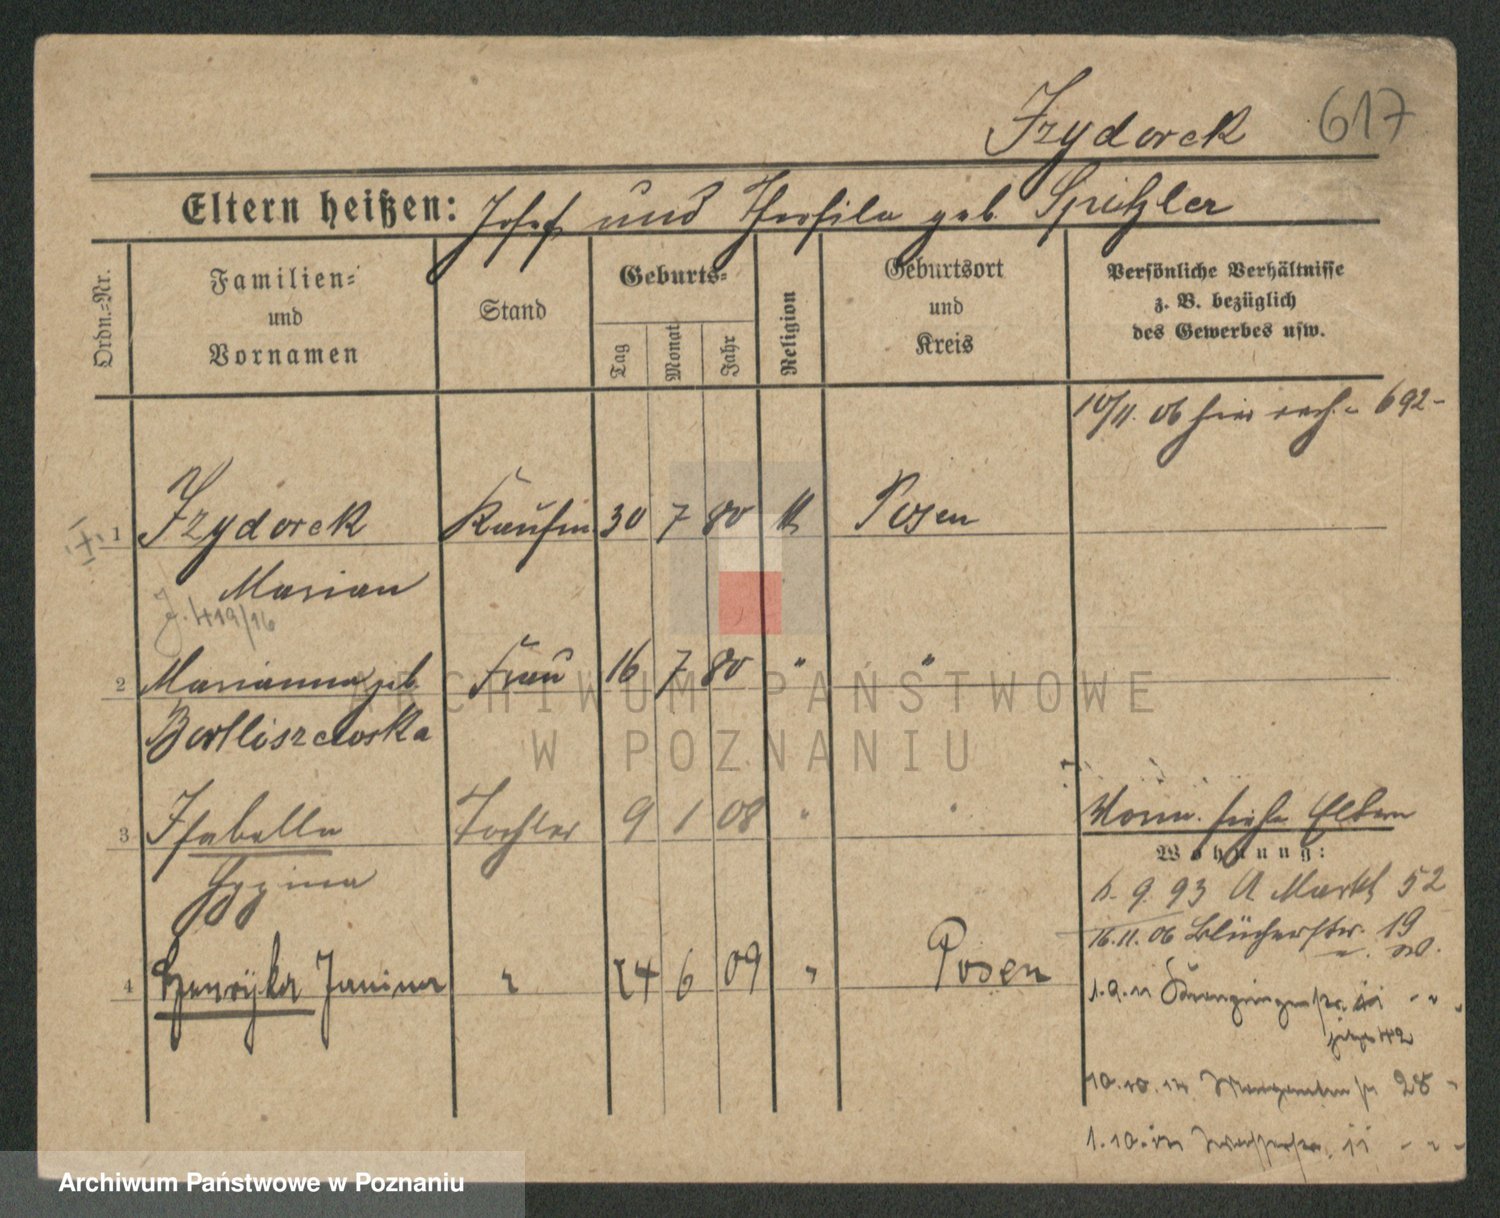 Izydorek 617
Eltern heißen: Josef und Theofila geb. Spitzler
Ordn.=Nr.
Familien=
und
Vornamen
Stand
Geburts=
Tag
Monat
Jahr
Religion
Geburtsort
und
Kreis
Persönliche Verhältnisse
z. B. bezüglich
des Gewerbes usw.
10/11. 06 hier 692-
1 Izydorek Kaufm 30 7 80 k Posen
Marian
J. 419/16
2 Marianna geb. Frau 16 7 80 " "
Bartliszewska
3 Isabella Tochter 9 1 08 " "
Hygina
4 Henryka Janina " 24 6 09 " Posen
Vorw. siehe Eltern
Wohnung:
6. 9. 93 A Markt 52
16. 11. 06 Blücherstr. 19
1. 9. 11
10. 10. 28
1. 10. 11
ARCHIWUM PAŃSTWOWE
W POZNANIU
Archiwum Państwowe w Poznaniu